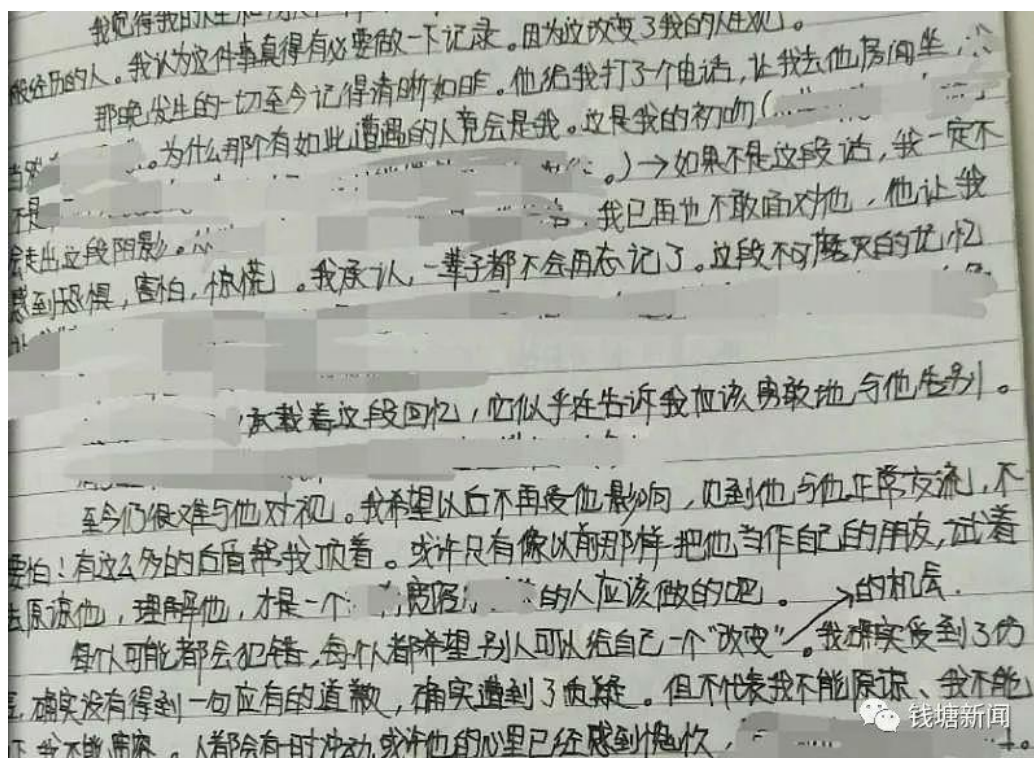 我觉得我的人生
般经历的人。我认为这件事真得有必要做一下记录。因为这改变了我的人生观。
那晚发生的一切至今记得清晰如昨。他给我打了个电话，让我去他房间坐，
。为什么那个有如此遭遇的人竟会是我。这是我的初吻(
。)→如果不是这段话，我一定不
会走出这段阴影。 我已再也不敢面对他，他让我
感到恐惧，害怕，惊慌。我承认，一辈子都不会再忘记了。这段不可磨灭的记忆
承载着这段回忆，它似乎在告诉我应该勇敢地与他告别。
至今仍很难与他对视。我希望以后不再受他影响，见到他与他正常交流，不
要怕！有这么多的后盾帮我顶着。或许只有像以前那样把他当作自己的朋友，试着
去原谅他，理解他，才是一个 宽容 的人应该做的吧。 →的机会.
每个人可能都会犯错，每个人都希望别人可以给自己一个“改变”。我确实受到了伤
害，确实没有得到一句应有的道歉，确实遭到了质疑。但不代表我不能原谅、我不能
我不能宽容。人都会有一时冲动，或许他的心里已经感到愧疚，
钱塘新闻